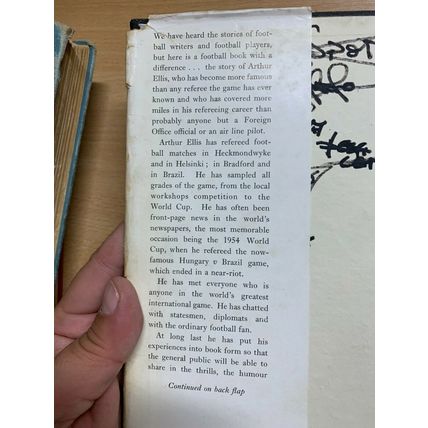 We have heard the stories of foot-
ball writers and football players,
but here is a football book with a
difference . . . the story of Arthur
Ellis, who has become more famous
than any referee the game has ever
known and who has covered more
miles in his refereeing career than
probably anyone but a Foreign
Office official or an air line pilot.
Arthur Ellis has refereed foot-
ball matches in Heckmondwyke
and in Helsinki ; in Bradford and
in Brazil. He has sampled all
grades of the game, from the local
workshops competition to the
World Cup. He has often been
front-page news in the world's
newspapers, the most memorable
occasion being the 1954 World
Cup, when he refereed the now-
famous Hungary v Brazil game,
which ended in a near-riot.
He has met everyone who is
anyone in the world's greatest
international game. He has chatted
with statesmen, diplomats and
with the ordinary football fan.
At long last he has put his
experiences into book form so that
the general public will be able to
share in the thrills, the humour
Continued on back flap